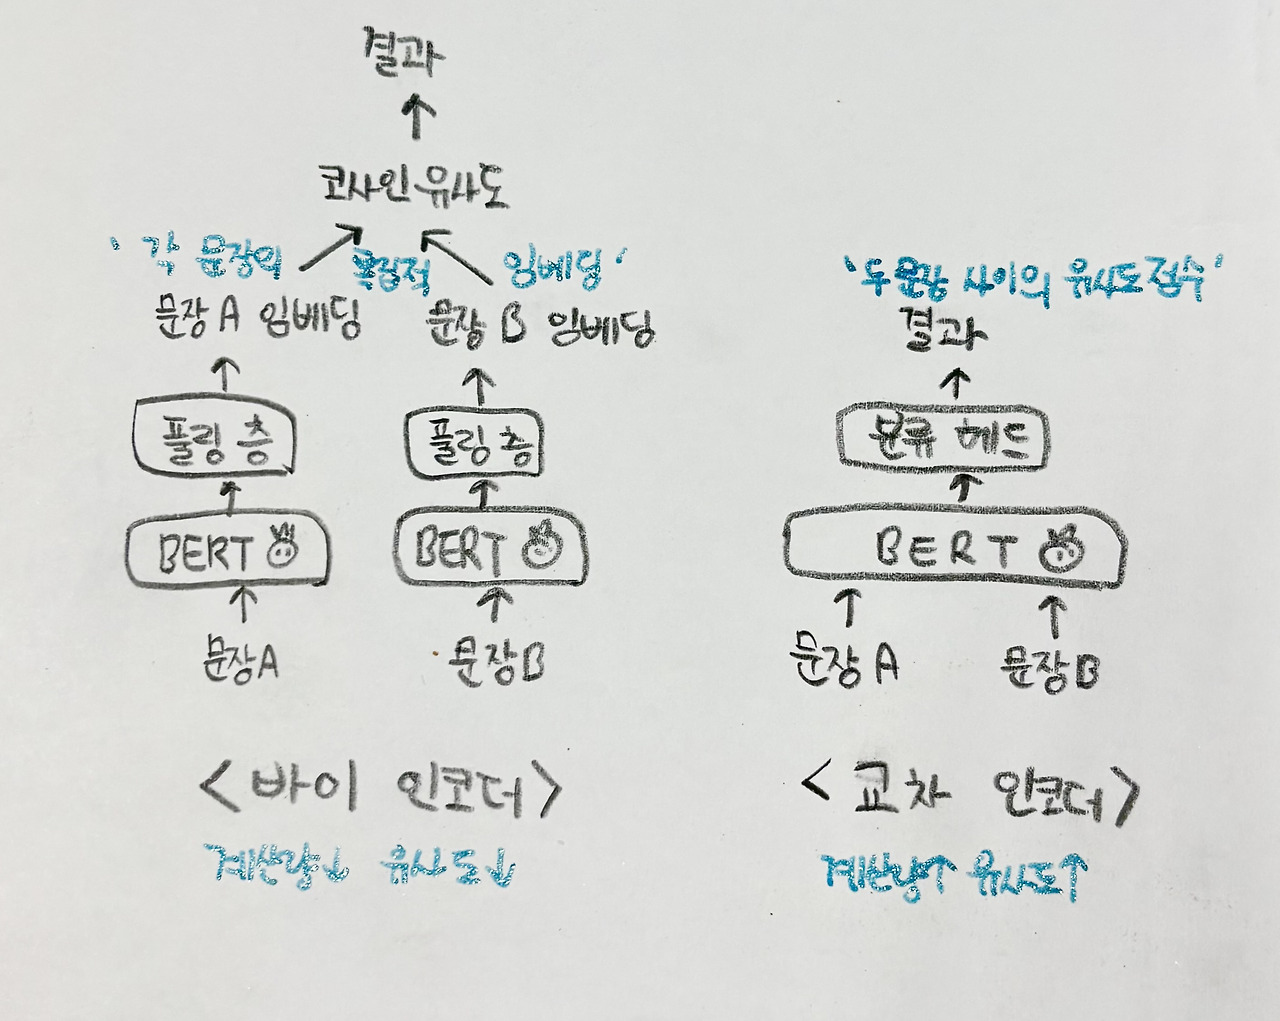 결과
↑
코사인 유사도
' 각 문장의 독립적 임베딩 '
문장 A 임베딩
문장 B 임베딩
풀링 층
풀링 층
BERT
BERT
문장A
문장B
<바이 인코더>
계산량↓ 유사도↓
'두 문장 사이의 유사도 점수'
결과
분류 헤드
BERT
문장 A
문장B
<교차 인코더>
계산량↑ 유사도↑